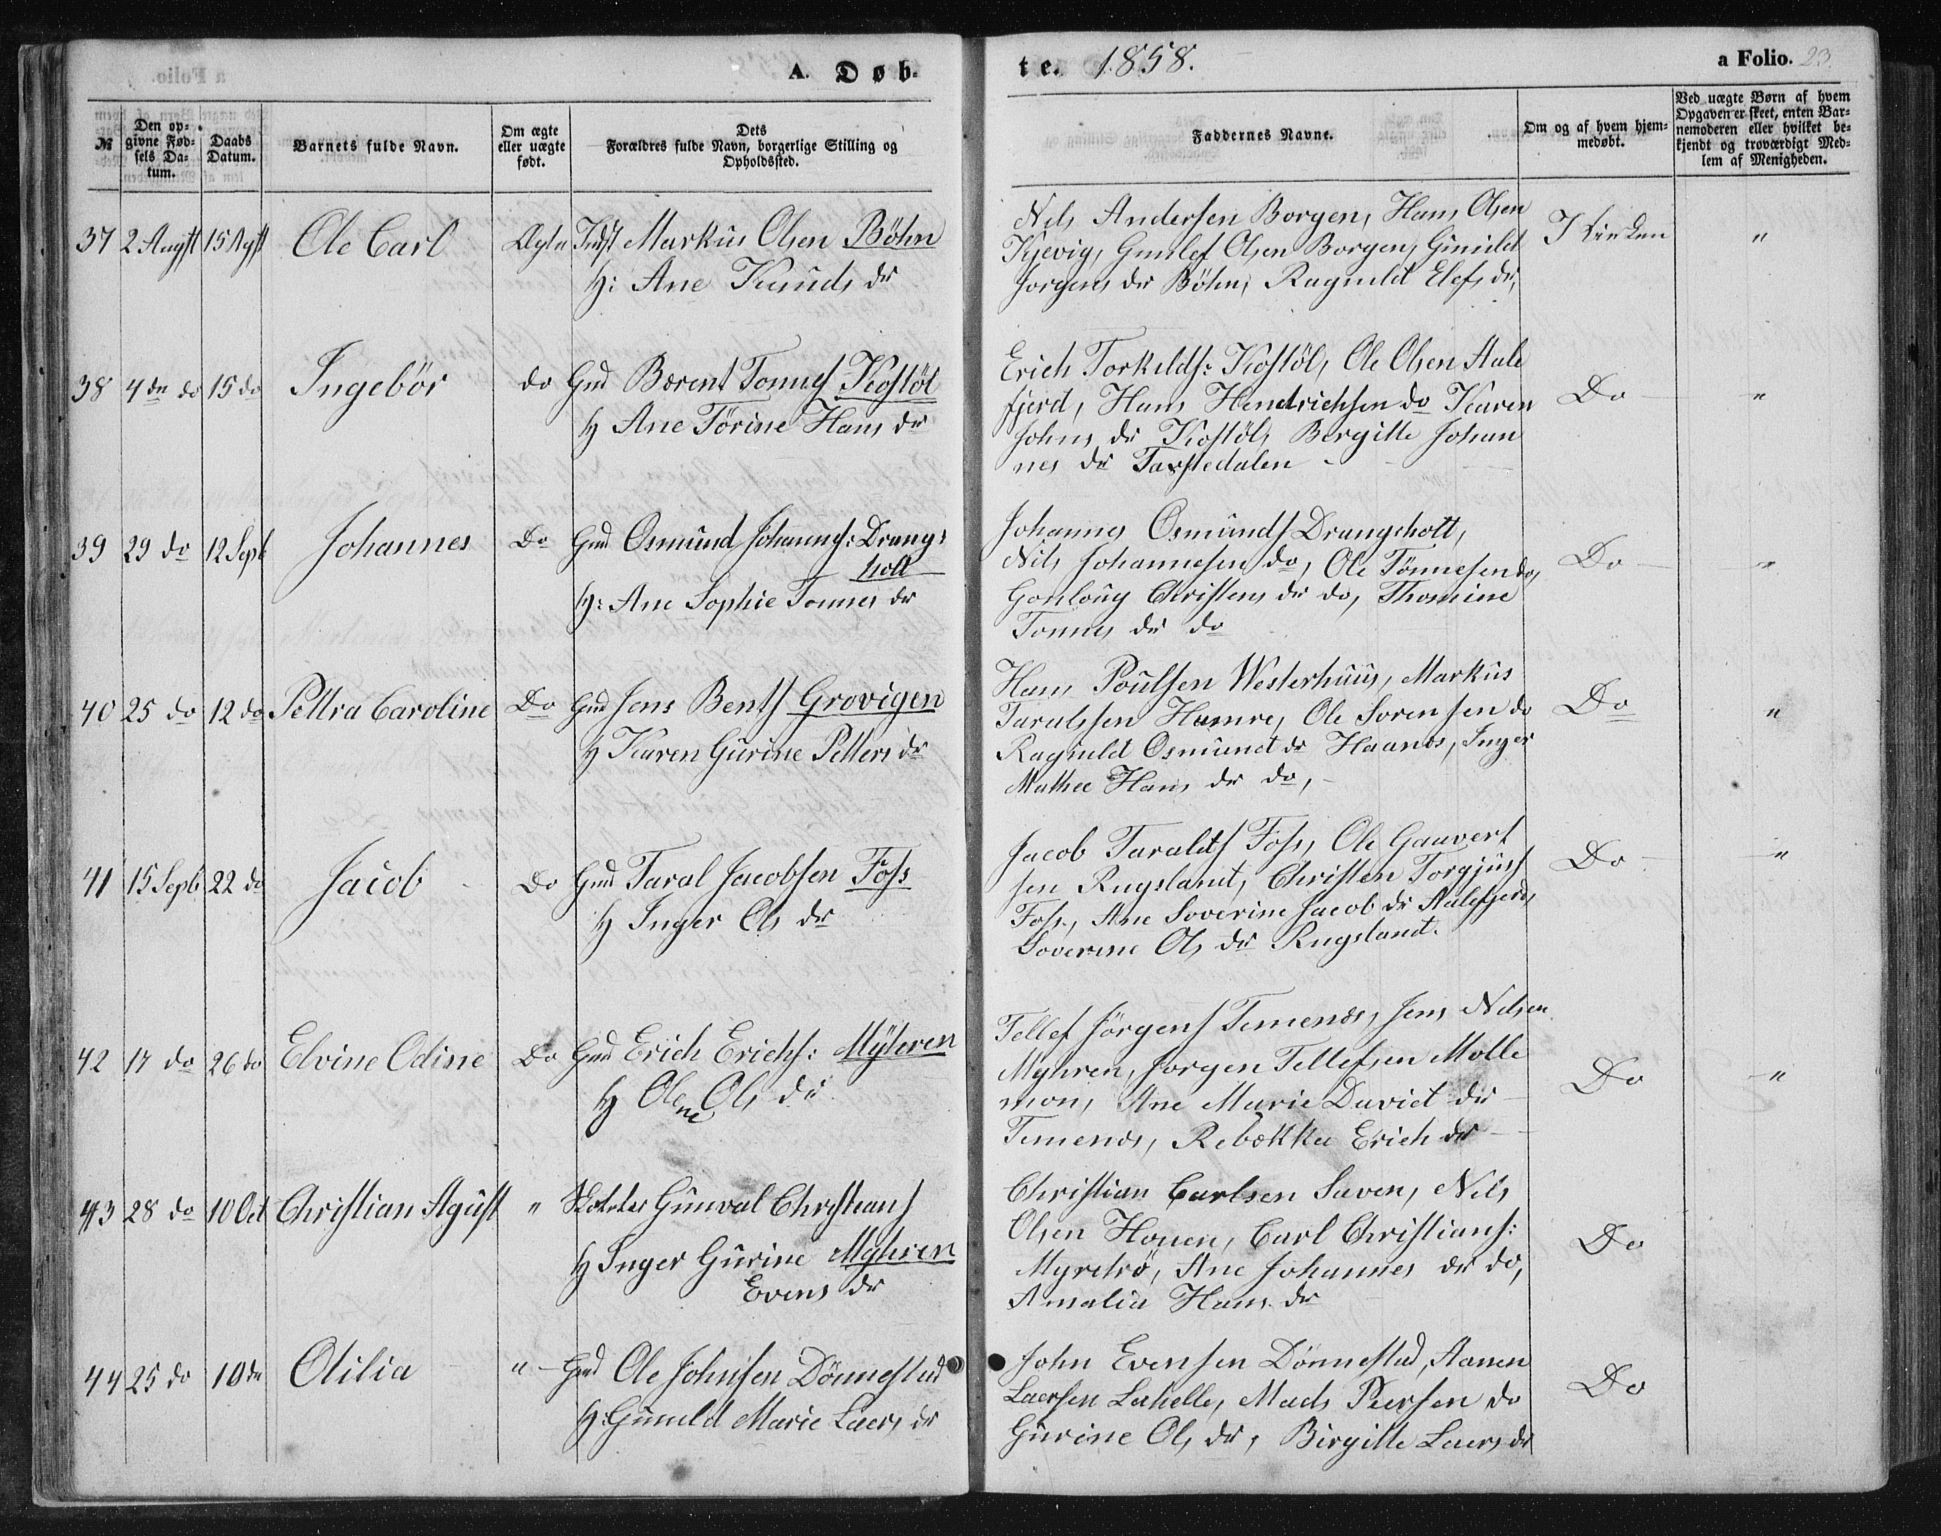 A. Døb-
te. 1858.
a Folio. 23.
№
Den op-
givne Fød-
sels Da-
tum.
Daabs
Datum.
Barnets fulde Navn.
Om ægte
eller uægte
født.
Dets
Forældres fulde Navn, borgerlige Stilling og
Opholdssted.
Faddernes Navne.
Om og af hvem hjem-
medøbt.
Ved uægte Børn af hvem
Opgaven er skeet, enten Bar-
nemoderen eller hvilket be-
kjendt og troværdigt Med-
lem af Menigheden.
37 2 Augst 15 Agst Ole Carl Ægte Indst Markus Olsen Böhn
H: Ane Knuds dr
Nels Andersen Borgen, Hans Olsen
Kjevig, Gunlef Olsen Borgen, Gunild
Jorgens dr Böhn, Ragnild Elefs dr,
I Kirken "
38 4de do 15 do Ingebör do Gmd Bærent Tonnes Kostöl
H Ane Törine Hans dr
Erich Torkilds: Kostöl, Ole Olsen Aale
fjerd, Hans Hendrichsen do Karen
Johns dr Kostöl, Bergitte Johan
nes dr Tarstedalen
Do "
39 29 do 12 Sept Johannes Do Gmd Osmund Johannes: Drang:
holt
H: Ane Sophie Tonnes dr
Johannes Osmunds Drangeholt,
Nils Johannesen do, Ole Tönnesen do,
Gonloug Christens dr do, Thomine
Tonnes dr do
Do "
40 25 do 12 do Pettra Caroline Do Gmd Jens Bents Grovigen
H Karen Gurine Petters dr
Hans Poulsen Westerhuus, Markus
Taraldsen Hamre, Ole Sorensen do
Ragnild Osmund dr Haanes, Inger
Mathea Hans dr do,
Do "
41 15 Sept 22 do Jacob Do Gmd Taral Jacobsen Foss
H Inger Ols dr
Jacob Taralds Foss, Ole Gauvert
sen Rugsland, Christen Torgjus
Foss, Ane Soverine Jacob dr Aalefjerd,
Soverine Ols dr Rugsland.
Do "
42 17 do 26 do Elvine Odine Do Gmd Erich Erichs: Myhren
H Olene Ols dr
Tellef Jörgens Temenes, Jens Nilsen
Myhren, Jorgen Tellefsen Molle
mon, Ane Marie David dr
Temenes, Rebækka Erich dr
Do "
43 28 do 10 Oct Christian Agust " Gunval Christians
H Inger Gurine Myhren
Evens dr
Christian Carlsen Saven, Nils
Olsen Honen, Carl Christians:
Myretrö, Ane Johannes dr do,
Amalia Hans dr
Do
44 25 do 10 de Otilia " Gmd Ole Johnsen Dönnestad
H: Gunuld Marie Laers dr
John Evensen Dönnestad, Aanen
Laersen Lahelle, Mads Peersen do
Gurine Ols dr, Birgitte Laers dr
Do